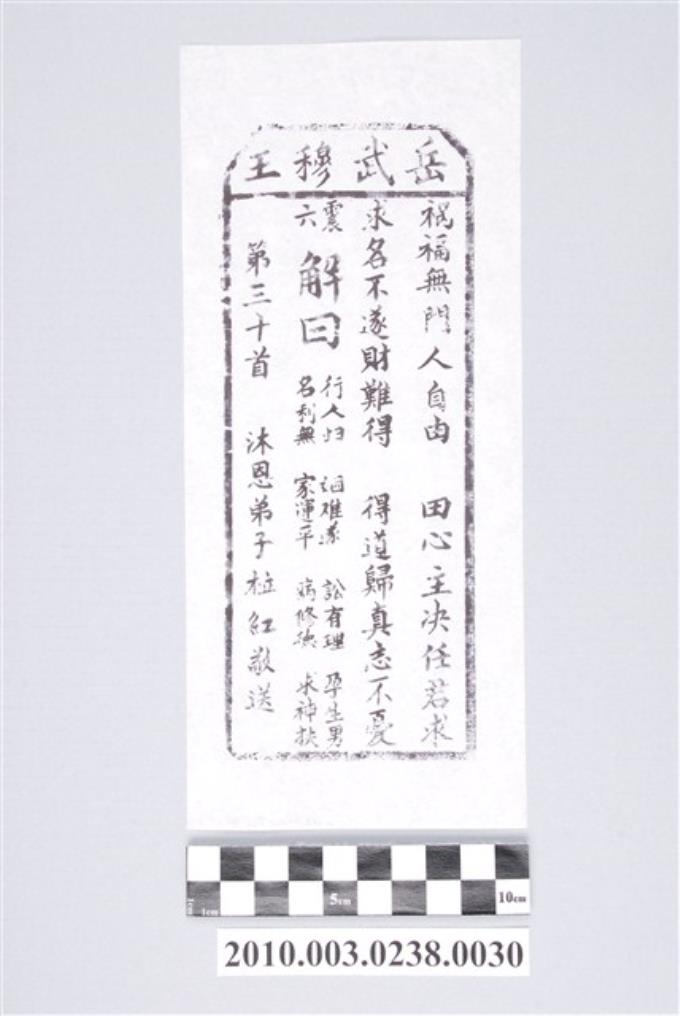 岳武穆王
禍福無門人自由 田心主决任君求
求名不遂財難得 得道歸真志不憂
震六
解曰
行人归 婚难遂 訟有理 孕生男
名利無 家運平 病修德 求神扶
第三十首 沐恩弟子 紅敬送
1cm 5cm 10cm
2010.003.0238.0030